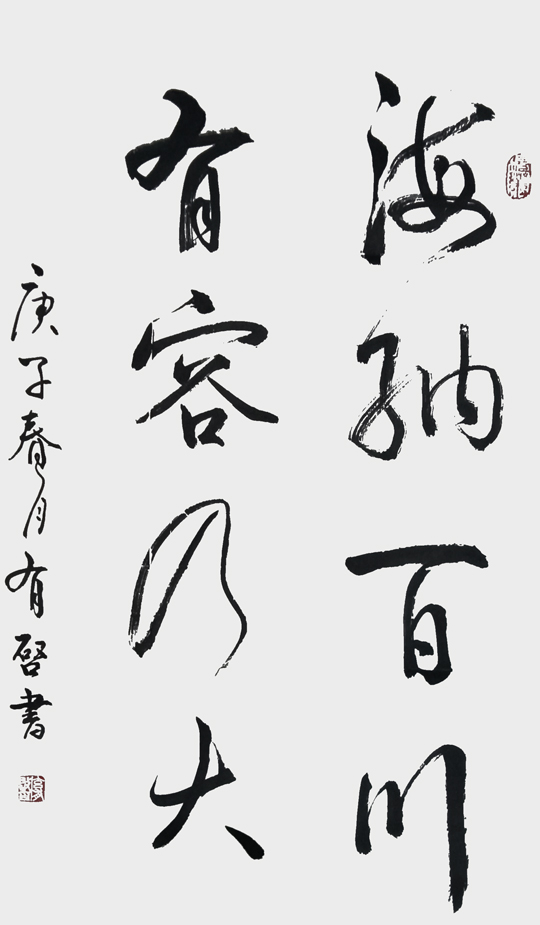 海纳百川
有容乃大
庚子春月有啓書